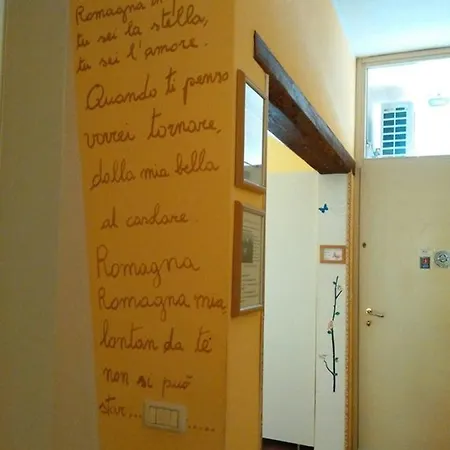 Romagna in
tu sei la stella,
tu sei l'amore.
Quando ti penso
vorrei tornare,
dalla mia bella
al casolare.
Romagna
Romagna mia,
lontan da te
non si può
star...
.....